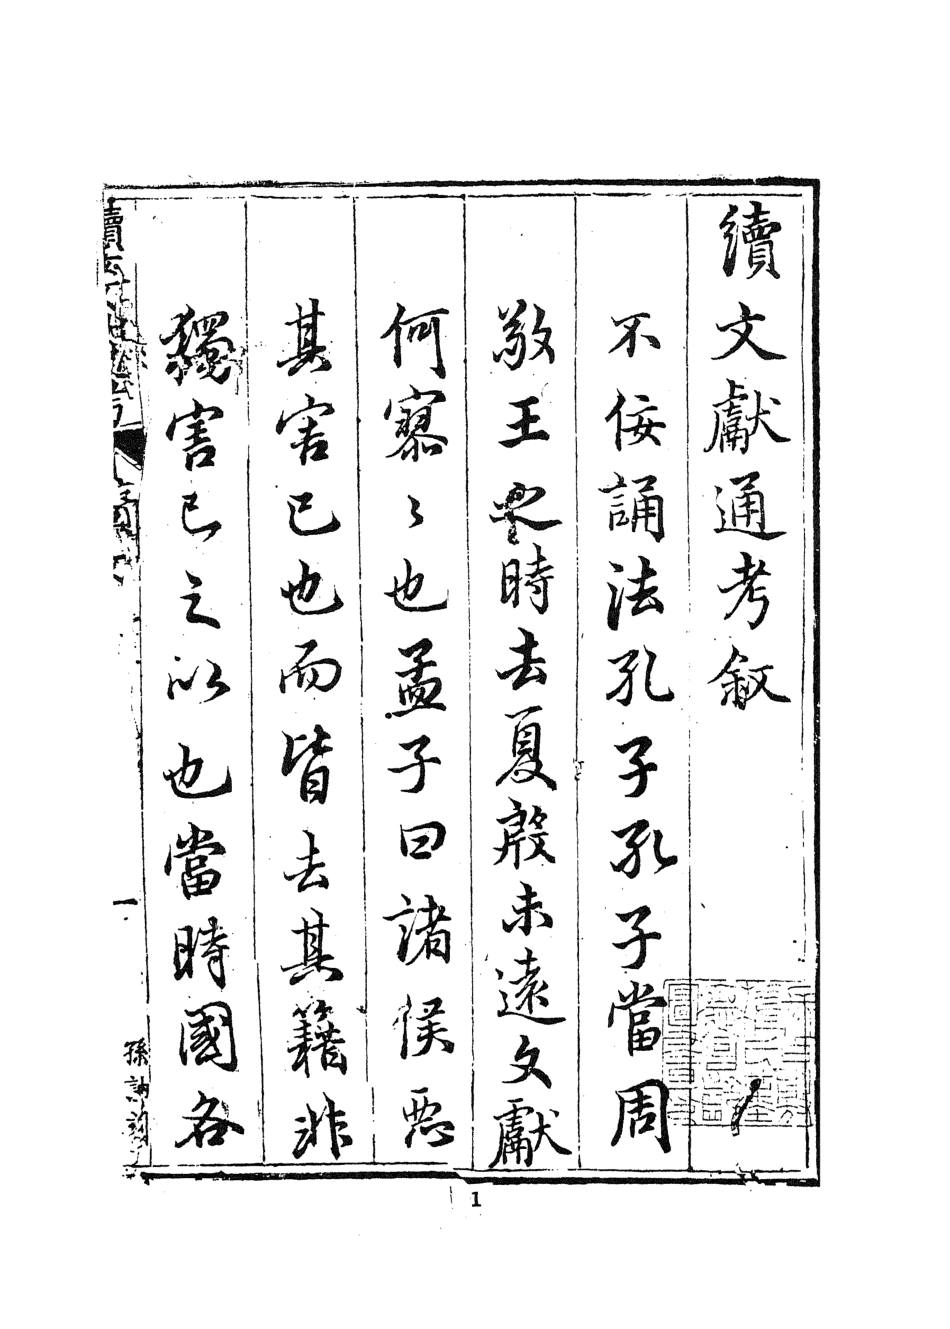 續文獻通考敘
不佞誦法孔子孔子當周
敬王之時去夏殷未遠文獻
何寥〻也孟子曰諸侯惡
其害己也而皆去其籍非
獨害己之以也當時國各
續文獻通考
序
一
孫訥
1